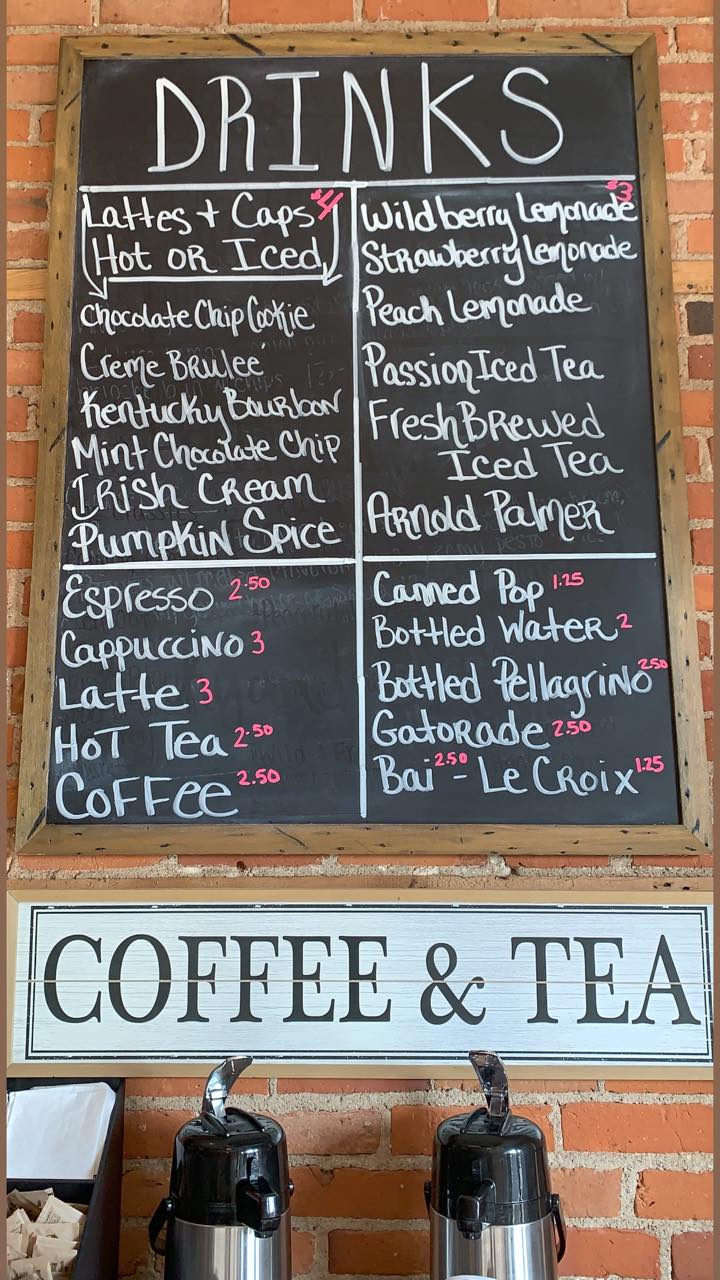 DRINKS
Lattes + Caps $4
Hot OR Iced
Chocolate Chip Cookie
Creme Brulee
Kentucky Bourbon
Mint Chocolate Chip
Irish Cream
Pumpkin Spice
Espresso 2.50
Cappuccino 3
Latte 3
Hot Tea 2.50
Coffee 2.50
$3
Wildberry Lemonade
Strawberry Lemonade
Peach Lemonade
Passion Iced Tea
Fresh Brewed
Iced Tea
Arnold Palmer
Canned Pop 1.25
Bottled Water 2
Bottled Pellagrino 2.50
Gatorade 2.50
Bai 2.50 - Le Croix 1.25
COFFEE & TEA